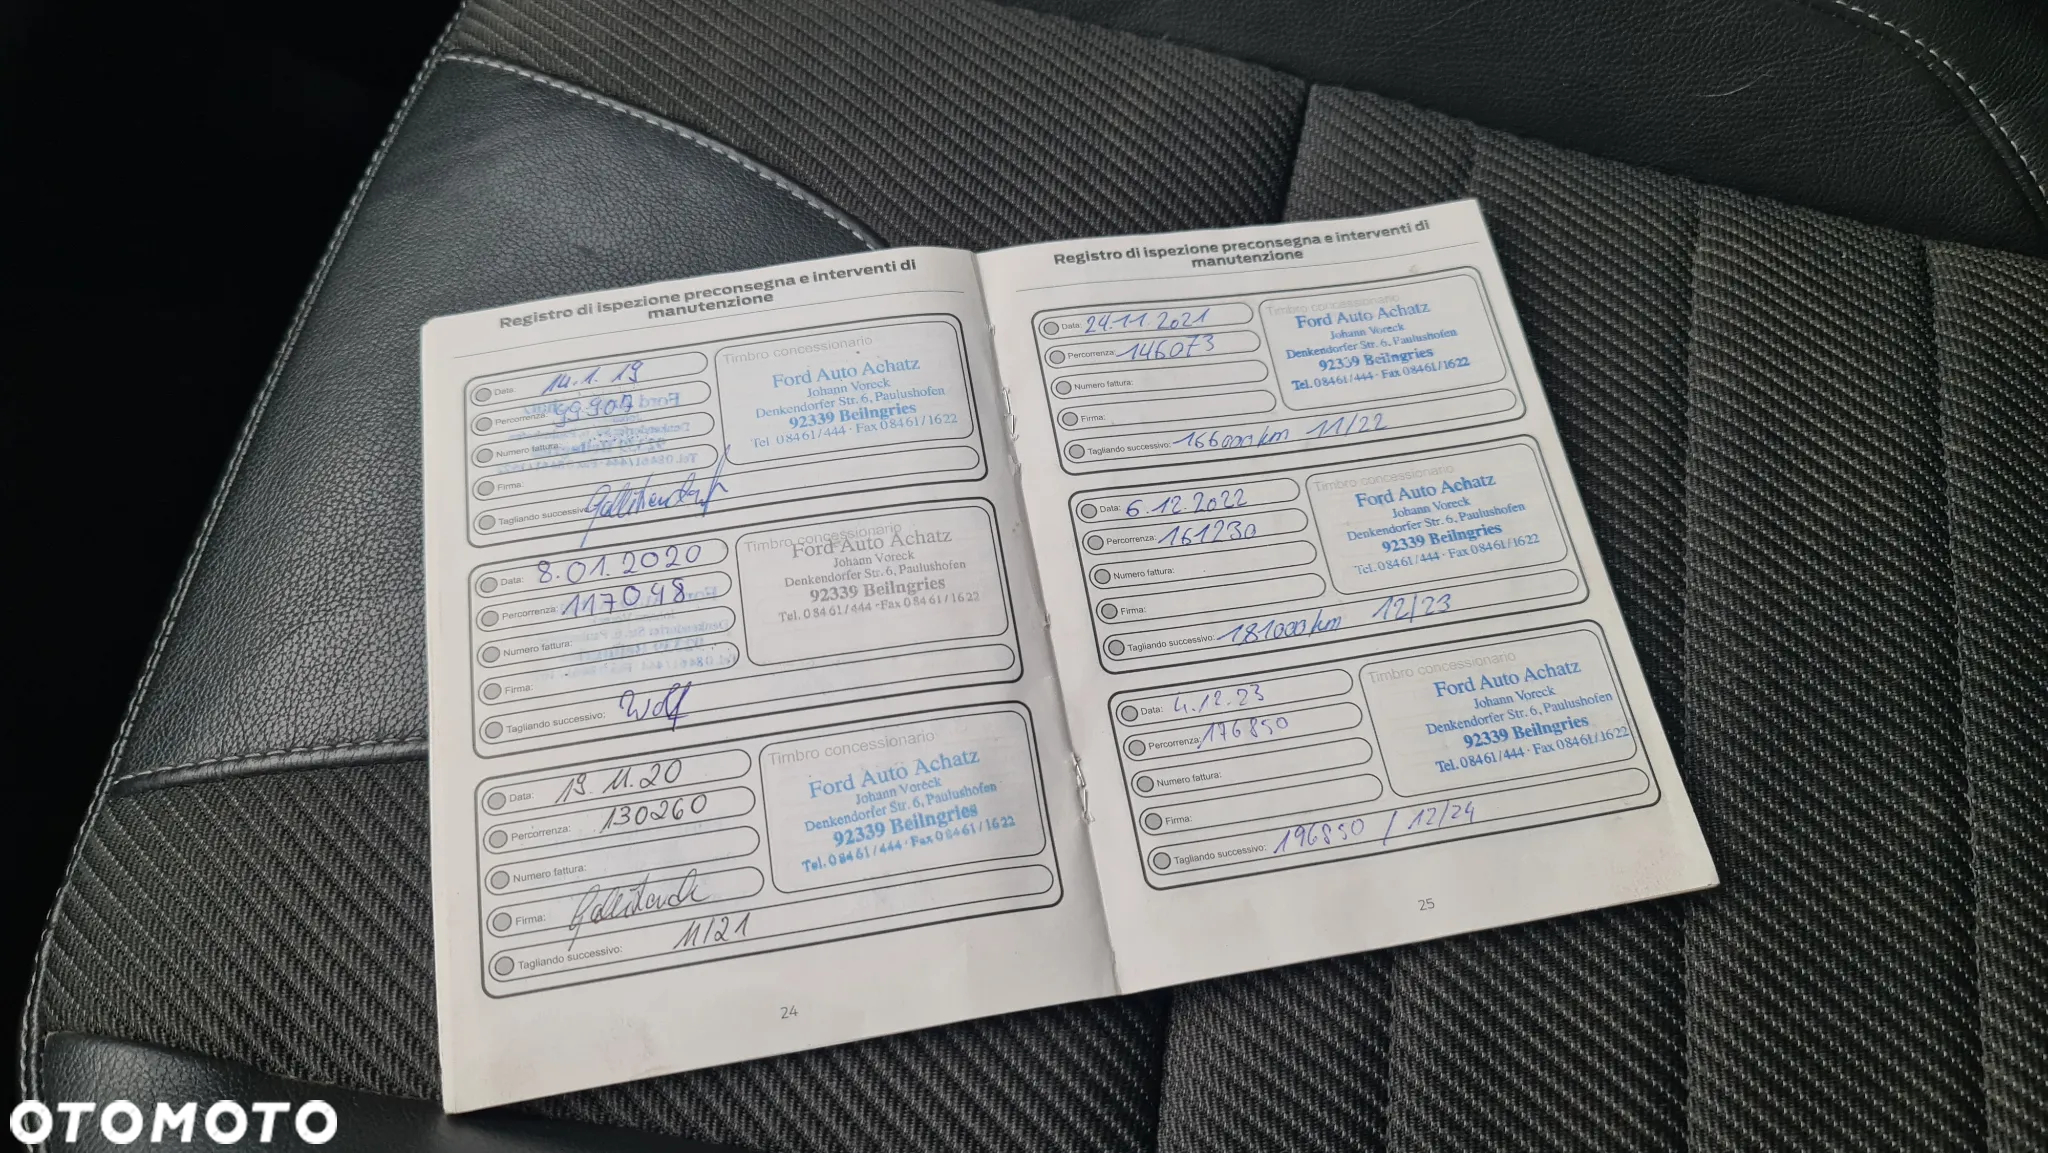 Registro di ispezione preconsegna e interventi di
manutenzione
Data: 14.1.19
Percorrenza: 99907
Numero fattura:
Firma:
Tagliando successivo:
Timbro concessionario
Ford Auto Achatz
Johann Voreck
Denkendorfer Str. 6, Paulushofen
92339 Beilngries
Tel 08461/444 · Fax 08461/1622
Data: 8.01.2020
Percorrenza: 117098
Numero fattura:
Firma:
Tagliando successivo: Wolf
Timbro concessionario
Ford Auto Achatz
Johann Voreck
Denkendorfer Str. 6, Paulushofen
92339 Beilngries
Tel. 08461/444 -Fax 08461/1622
Data: 19.11.20
Percorrenza: 130260
Numero fattura:
Firma:
Tagliando successivo: 11/21
Timbro concessionario
Ford Auto Achatz
Johann Voreck
Denkendorfer Str. 6, Paulushofen
92339 Beilngries
Tel. 08461/444 · Fax 08461/1622
24
Registro di ispezione preconsegna e interventi di
manutenzione
Data: 24.11.2021
Percorrenza: 146073
Numero fattura:
Firma:
Tagliando successivo: 166000km 11/22
Timbro concessionario
Ford Auto Achatz
Johann Voreck
Denkendorfer Str. 6, Paulushofen
92339 Beilngries
Tel. 08461/444 · Fax 08461/1622
Data: 6.12.2022
Percorrenza: 161230
Numero fattura:
Firma:
Tagliando successivo: 181000km 12/23
Timbro concessionario
Ford Auto Achatz
Johann Voreck
Denkendorfer Str. 6, Paulushofen
92339 Beilngries
Tel. 08461/444 · Fax 08461/1622
Data: 4.12.23
Percorrenza: 176850
Numero fattura:
Firma:
Tagliando successivo: 196850 / 12/24
Timbro concessionario
Ford Auto Achatz
Johann Voreck
Denkendorfer Str. 6, Paulushofen
92339 Beilngries
Tel. 08461/444 · Fax 08461/1622
25
OTOMOTO